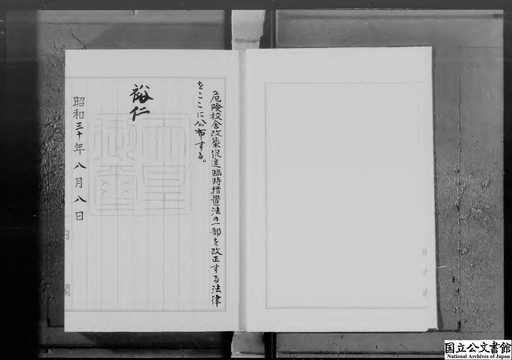 危険校舎改築促進臨時措置法の一部を改正する法律
をここに公布する。
裕仁
昭和三十年八月八日
国立公文書館
National Archives of Japan